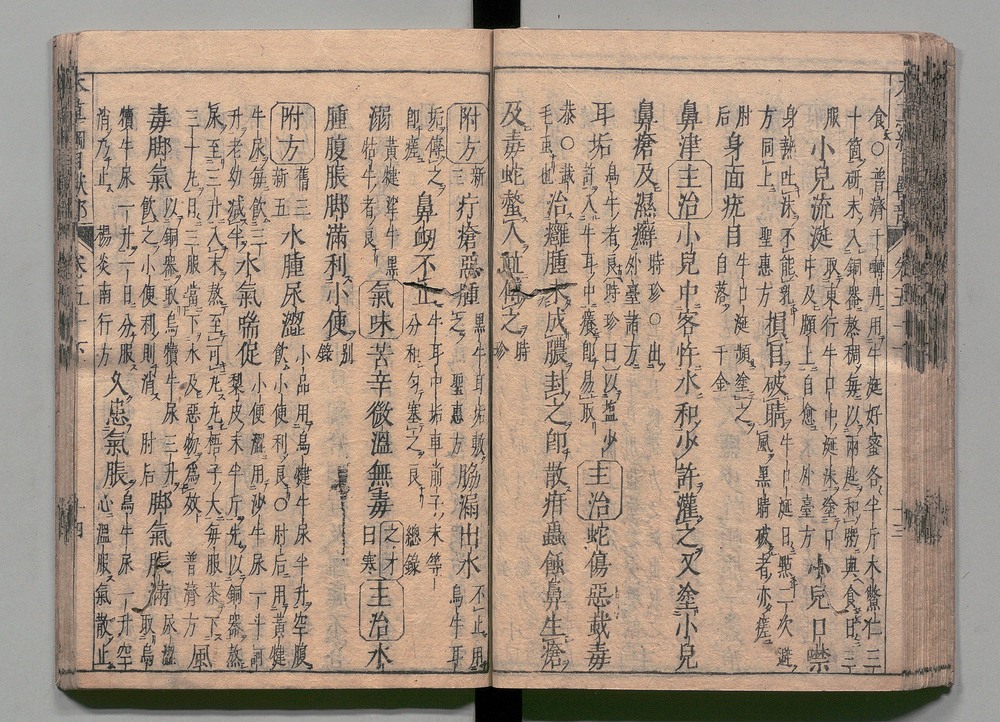 食○普濟千轉丹用牛涎好蜜各半斤木鱉仁三
十箇研末入銅器熬稠每以兩匙和粥與食日三
服　小兒流涎取東行牛口中涎沫塗口
中及頤上自愈外臺方　小兒口噤
身熱吐沫不能乳
方同上聖惠方　損目破睛牛口涎日點二次避
風黑睛破者亦瘥
肘后　身面疣目牛口涎頻塗之
自落千金
鼻津主治小兒中客忤水和少許灌之又塗小兒
鼻瘡及濕癬時珍○出
外臺諸方
耳垢烏牛者良時珍曰以鹽少
許入牛耳中癢即易取主治蛇傷惡䖣毒
恭○䖣
毛蟲也治癰腫未成膿封之即散疳蟲蝕鼻生瘡
及毒蛇螫人並傅之時
珍
附方新三疔瘡惡腫黑牛耳垢敷
之聖惠方脇漏出水不止用
烏牛耳
垢傅之
即瘥　鼻衄不止牛耳中垢車前子末等
分和勻塞之良總錄
溺黃犍牛黑
牯牛者良氣味苦辛微溫無毒之才
曰寒主治水
腫腹脹脚滿利小便別
錄
附方舊三
新五水腫尿澀小品用烏犍牛尿半升空腹
飲小便利良○肘后用黃犍
牛尿每飲三
升老幼減半水氣喘促小便澀用沙牛尿一斗訶
梨皮末半斤先以銅器熬
尿至三升入末熬至可丸丸梧子大每服茶下
三十丸日三服當下水及惡物爲效普濟方　風
毒脚氣以銅器取烏犢牛尿三升
飲之小便利則消肘后　脚氣脹滿尿澀
取烏
犢牛尿一升一日分服
消乃止楊炎南行方　久患氣脹烏牛尿一升空
心溫服氣散止